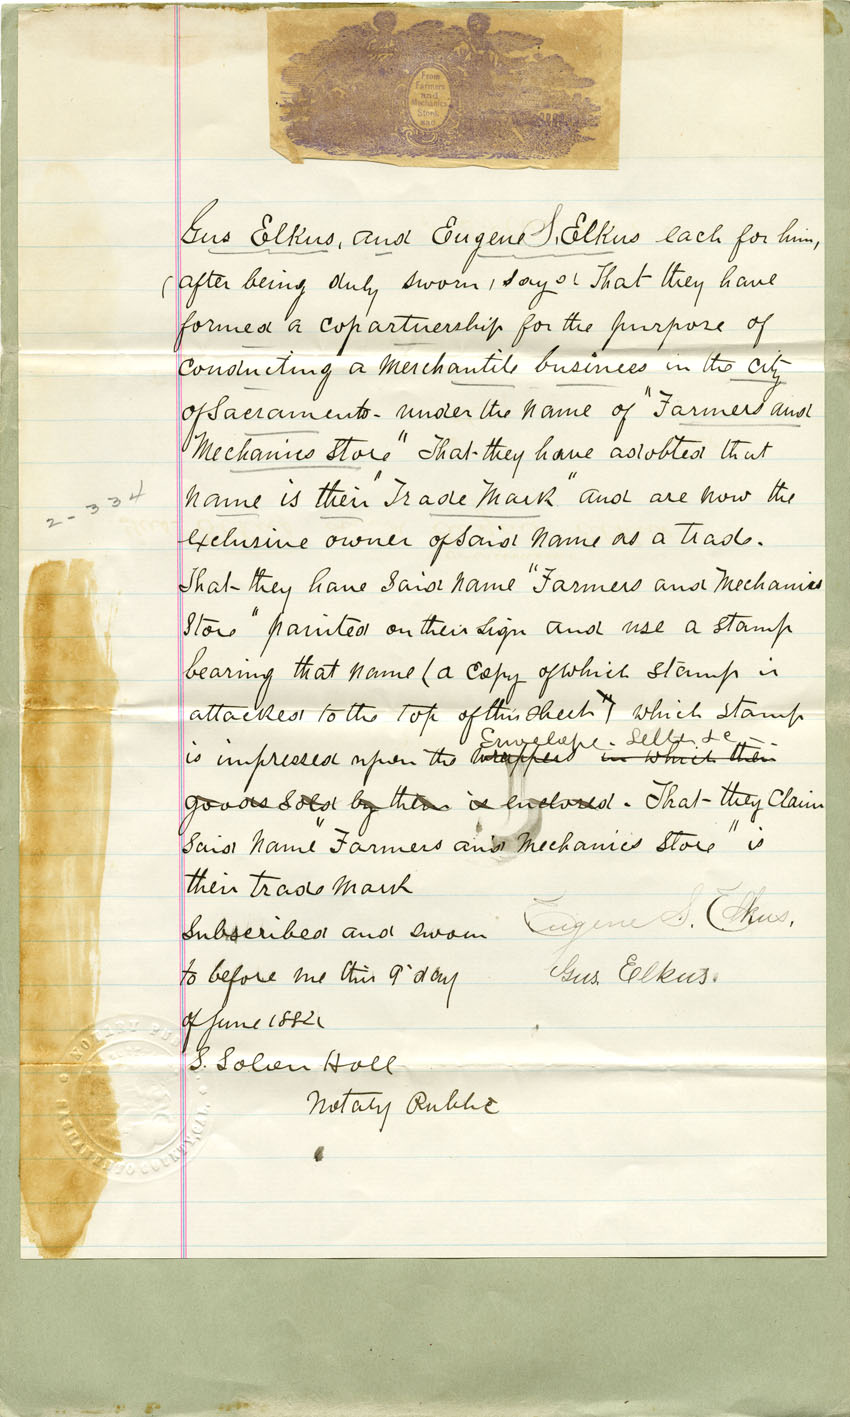 From
Farmers
and
Mechanics
Store
Gus Elkus, and Eugene S. Elkus each for him,
(after being duly sworn, says That they have
formed a copartnership for the purpose of
conducting a merchantile business in the city
of Sacramento - under the name of "Farmers and
Mechanics Store" That they have adobted that
name is their "Trade Mark" and are now the
exclusive owner of said name as a trade.
That they have said name "Farmers and Mechanics
Store" painted on their sign and use a stamp
bearing that name (a copy of which stamp is
attached to the top of this sheet") which stamp
Envelope. &c
is impressed upon the wrappers in which their
goods sold by them is enclosed. That they claim
said name "Farmers and Mechanics Store" is
their trade mark
Subscribed and sworn Eugene S. Elkus.
to before me this 9 day Gus Elkus.
of June 1882
S. Solon Holl
Notary Public
2-334
NOTARY PUBLIC
SACRAMENTO COUNTY, CAL.